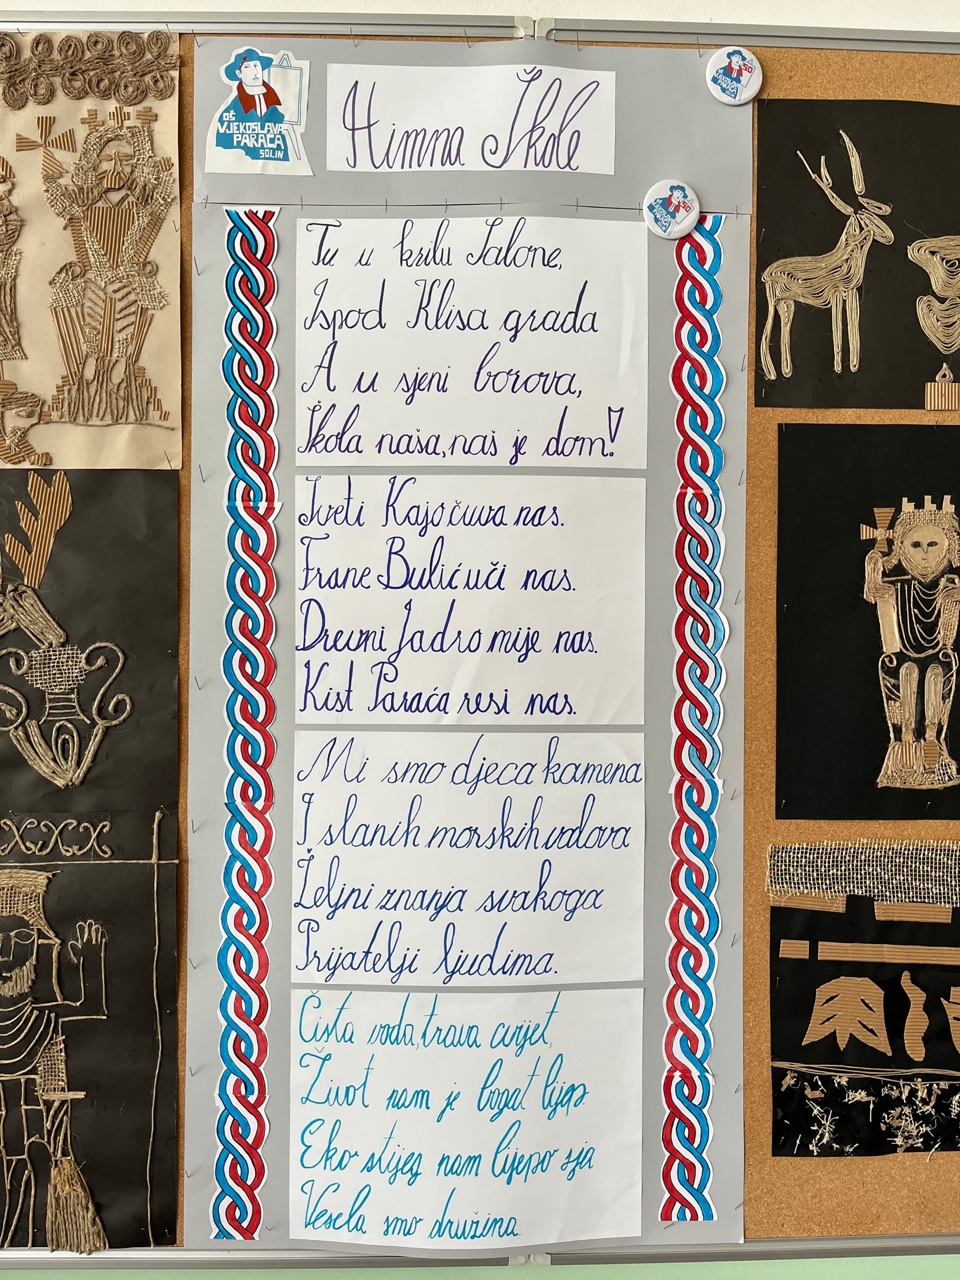 OŠ
VJEKOSLAVA
PARAĆA
SOLIN
Himna Škole
50
50
Tu u krilu Salone,
Ispod Klisa grada
A u sjeni borova,
Škola naša, naš je dom!
Sveti Kajo čuva nas.
Frane Bulić uči nas.
Drevni Jadro mije nas.
Kist Paraća resi nas.
Mi smo djeca kamena
I slanih morskih valova
Željni znanja svakoga
Prijatelji ljudima.
Čista voda, trava cvijet,
Život nam je bogat lijep.
Eko stijeg nam lijepo sja
Vesela smo družina.